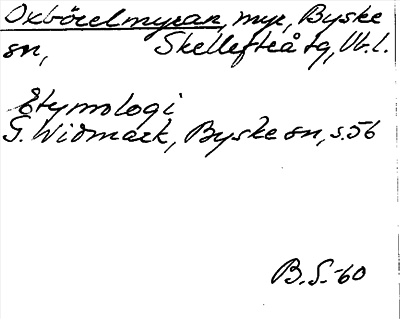 Oxbörelmyran, myr, Byske
sn, Skellefteå tg, Vb.l.
Etymologi
G. Widmark, Byske sn, s. 56
B.S.-60